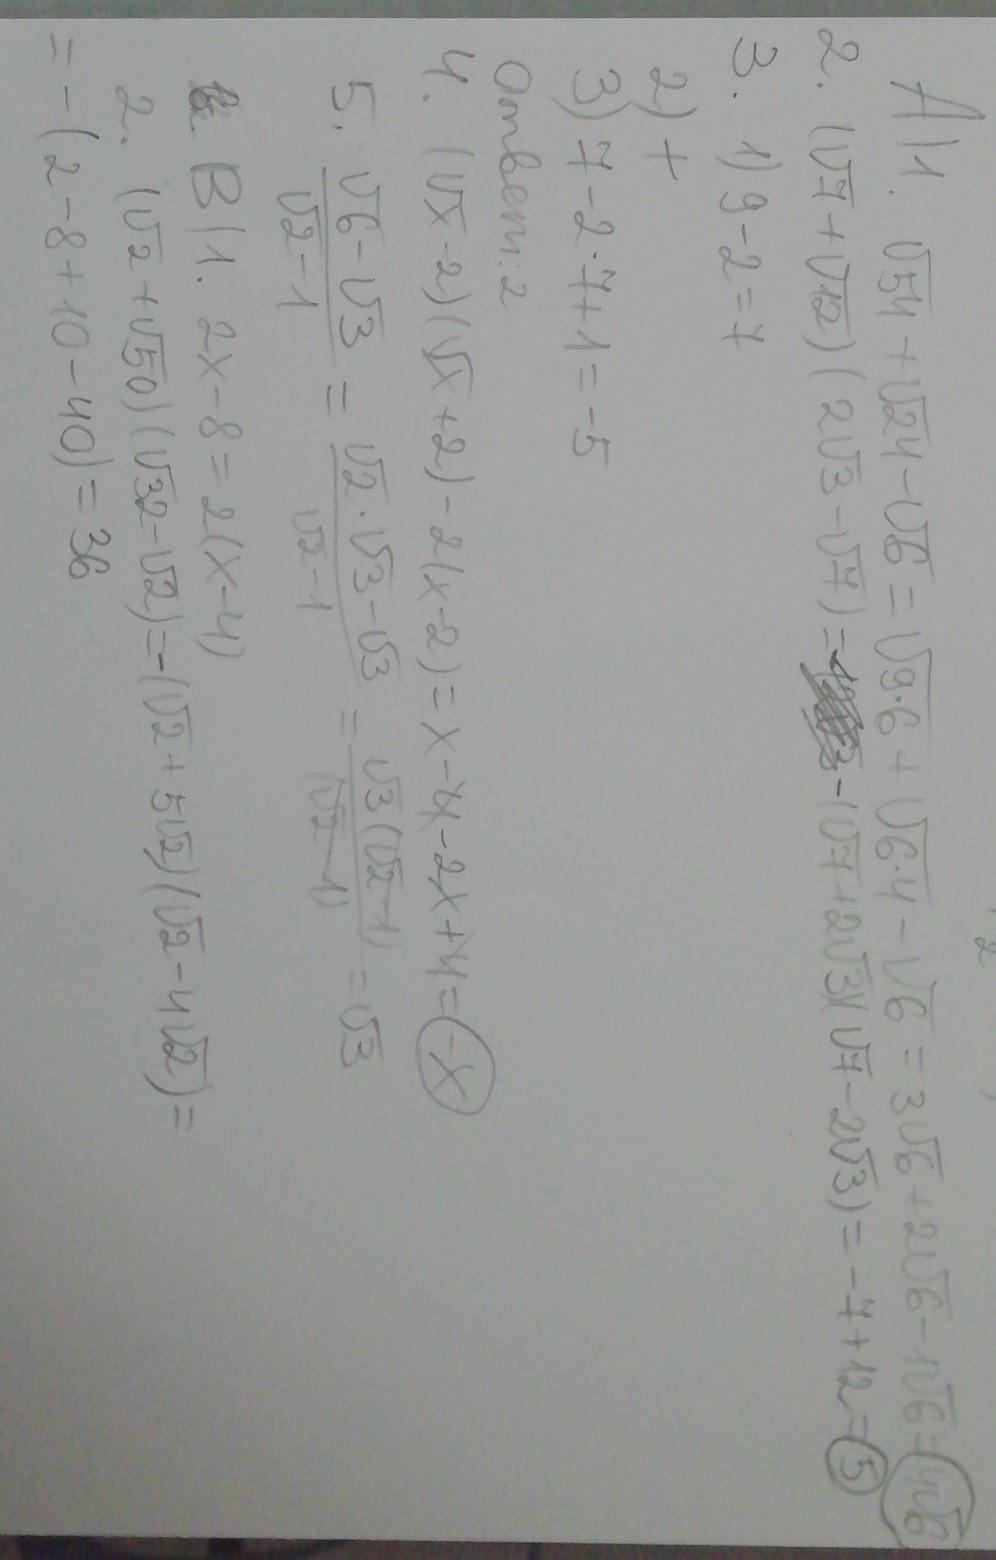 A|1. √54 + √24 - √6 = √9·6 + √6·4 - √6 = 3√6 + 2√6 - 1√6 = 4√6
2. (√7 + √12)(2√3 - √7) = -(√7 + 2√3)(√7 - 2√3) = -7 + 12 = 5
3. 1) 9 - 2 = 7
2) +
3) 7 - 2·7 + 1 = -5
Ответ: 2
4. (√x - 2)(√x + 2) - 2(x - 2) = x - 4 - 2x + 4 = -x
5. (√6 - √3)/(√2 - 1) = (√2·√3 - √3)/(√2 - 1) = (√3(√2 - 1))/((√2 - 1)) = √3
B|1. 2x - 8 = 2(x - 4)
2. (√2 + √50)(√32 - √2) = -(√2 + 5√2)(√2 - 4√2) =
= -(2 - 8 + 10 - 40) = 36